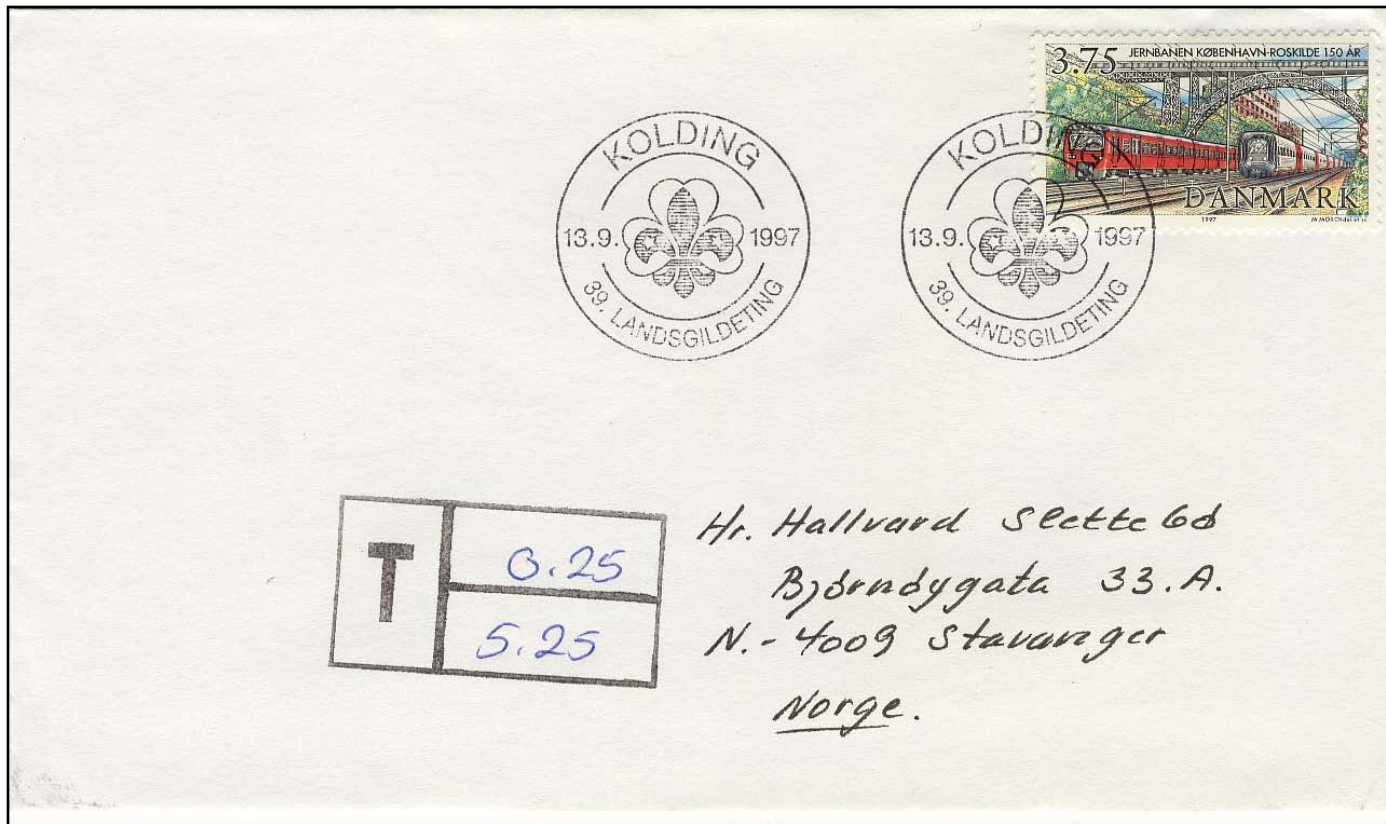 JERNBANEN KØBENHAVN-ROSKILDE 150 ÅR
3.75
DANMARK
1997
KOLDING
13.9. 1997
39. LANDSGILDETING
KOLDING
13.9. 1997
39. LANDSGILDETING
T
0.25
5.25
Hr. Hallvard Slettebø
Bjørnøygata 33.A.
N.- 4009 Stavanger
Norge.